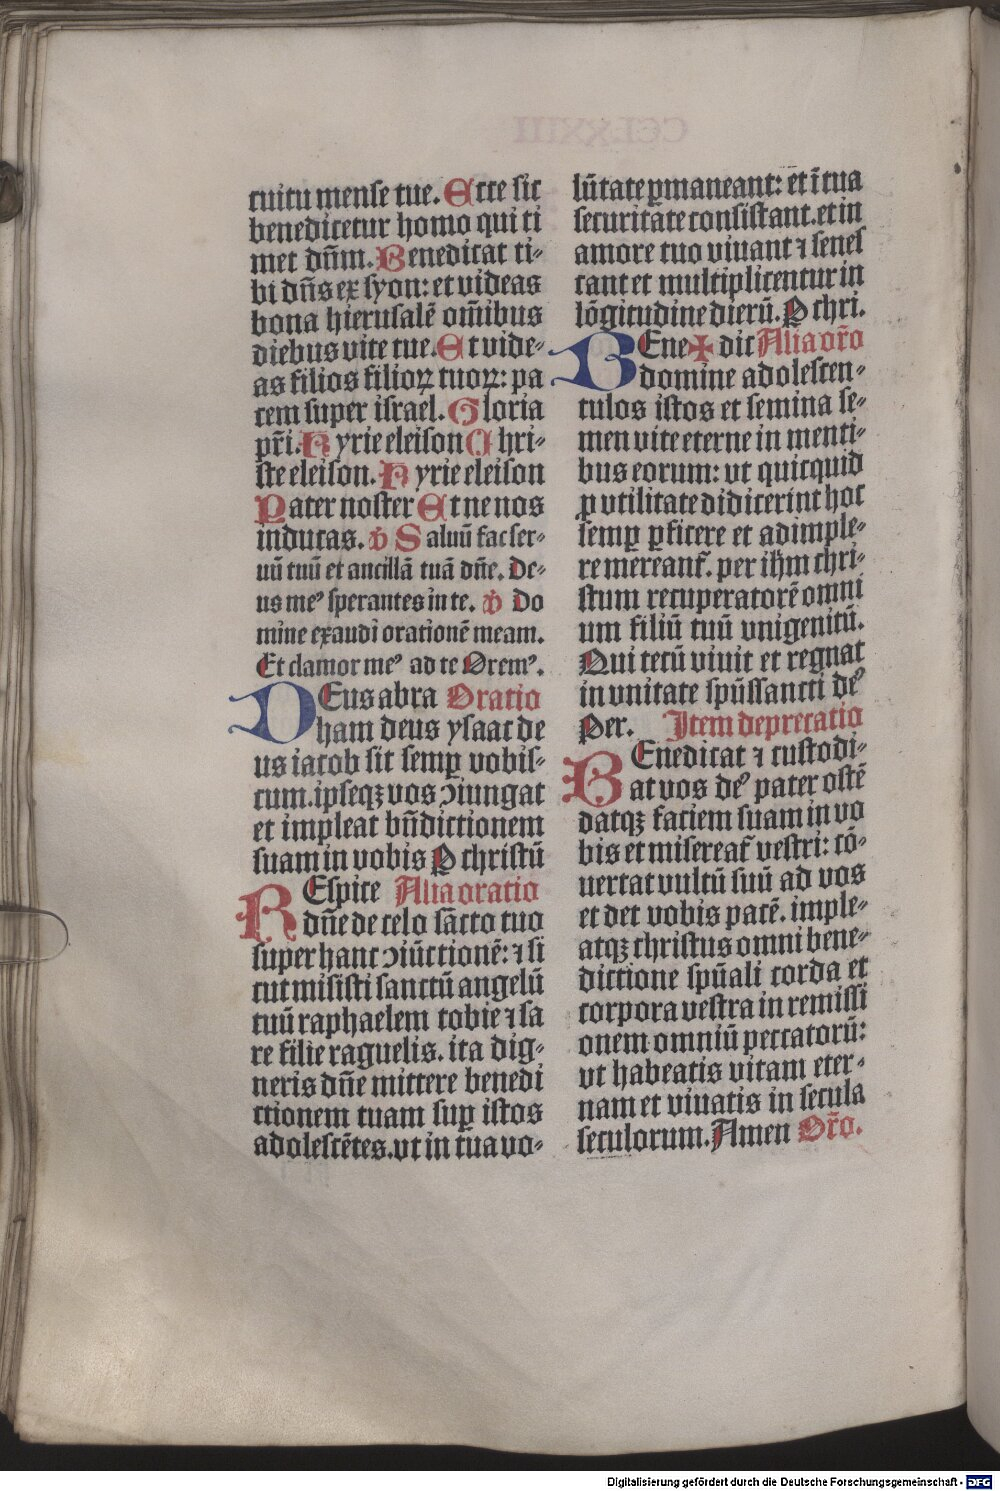 cuitu mense tue. Ecce sic
benedicetur homo qui ti
met dn̄m. Benedicat ti-
bi dn̄s ex syon: et videas
bona hierusalē om̄ibus
diebus vite tue. Et vide-
as filios filioꝝ tuoꝝ: pa
cem super israel. Gloria
pr̄i. Kyrie eleison Chri-
ste eleison. Kyrie eleison
Pater noster Et ne nos
inducas. ℣ Saluū fac ser-
uū tuū et ancillā tuā dn̄e. De-
us meꝰ sperantes in te. ℣ Do
mine exaudi orationē meam.
Et clamor meꝰ ad te Oremꝰ.
DEus abra Oratio
ham deus ysaac de
us iacob sit semꝑ vobis-
cum. ipseqꝫ vos ꝯiungat
et impleat bn̄dictionem
suam in vobis P christū
REspice Alia oratio
dn̄e de celo sācto tuo
super hanc ꝯiūctionē: ⁊ si
cut misisti sanctū angelū
tuū raphaelem tobie ⁊ sa
re filie raguelis. ita dig-
neris dn̄e mittere benedi
ctionem tuam suꝑ istos
adolescētes. vt in tua vo-
lūtate ꝑmaneant: et ī tua
securitate consistant. et in
amore tuo viuant ⁊ senes
cant et multiplicentur in
lōgitudine dierū. P chri.
BEne✠dic Alia or̄o
domine adolescen-
tulos istos et semina se-
men vite eterne in menti-
bus eorum: vt quicquid
ꝓ vtilitate didicerint hoc
semꝑ ꝑficere et adimple-
re mereant᷑. per ih̄m chri-
stum recuperatorē omni
um filiū tuū vnigenitū.
Qui tecū viuit et regnat
in vnitate sp̄ūssancti deꝰ
Per. Item deprecatio
BEnedicat ⁊ custodi-
at vos deꝰ pater ostē
datqꝫ faciem suam in vo
bis et misereat᷑ vestri: cō-
uertat vultū suū ad vos
et det vobis pacē. imple-
atqꝫ christus omni bene-
dictione sp̄uali corda et
corpora vestra in remissi
onem omniū peccatorū:
vt habeatis vitam eter-
nam et viuatis in secula
seculorum. Amen Or̄o.
Digitalisierung gefördert durch die Deutsche Forschungsgemeinschaft - DFG